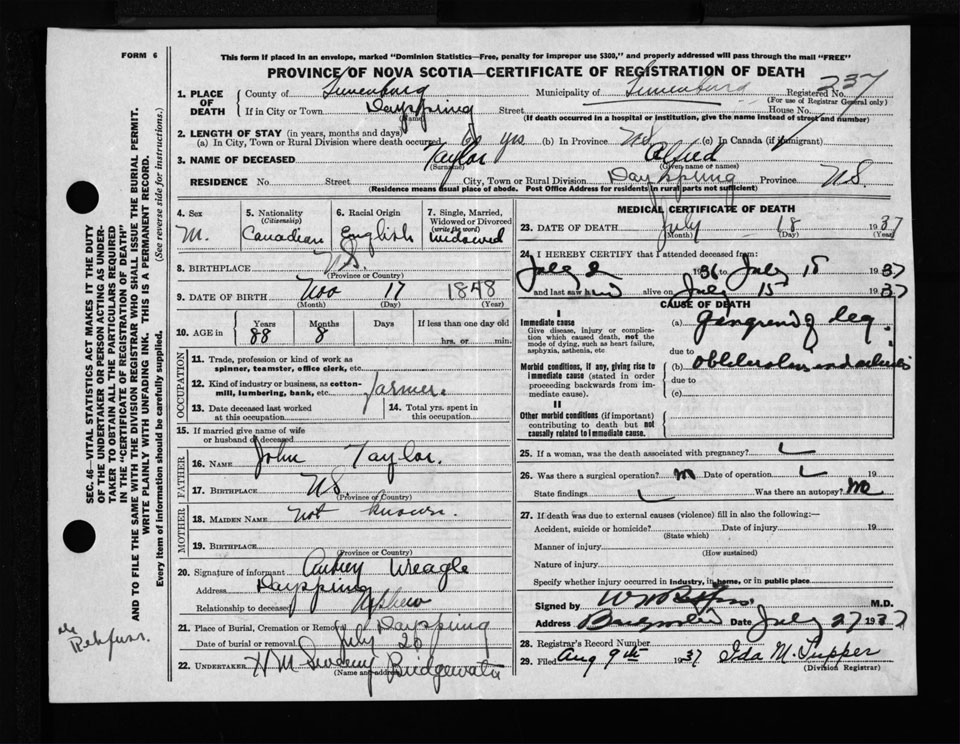 FORM 6
This form if placed in an envelope, marked "Dominion Statistics—Free, penalty for improper use $300," and properly addressed will pass through the mail "FREE"
PROVINCE OF NOVA SCOTIA—CERTIFICATE OF REGISTRATION OF DEATH
1. PLACE OF DEATH
County of Lunenburg Municipality of Lunenburg Registered No. 237
(For use of Registrar General only)
If in City or Town Dayspring Street House No.
(Name) (If death occurred in a hospital or institution, give the name instead of street and number)
2. LENGTH OF STAY (in years, months and days)
(a) In City, Town or Rural Division where death occurred yrs (b) In Province NS (c) In Canada (if immigrant)
3. NAME OF DECEASED Taylor Alfred
(Surname) (Given name or names)
RESIDENCE No. Street City, Town or Rural Division Dayspring Province N.S.
(Residence means usual place of abode. Post Office Address for residents in rural parts not sufficient)
4. Sex M.
5. Nationality (Citizenship) Canadian
6. Racial Origin English
7. Single, Married, Widowed or Divorced (write the word) Widowed
8. BIRTHPLACE N.S.
(Province or Country)
9. DATE OF BIRTH Nov 17 1848
(Month) (Day) (Year)
10. AGE in Years 88 Months 8 Days If less than one day old hrs. or min.
OCCUPATION
11. Trade, profession or kind of work as spinner, teamster, office clerk, etc.
12. Kind of industry or business, as cotton-mill, lumbering, bank, etc. farmer.
13. Date deceased last worked at this occupation
14. Total yrs. spent in this occupation
15. If married give name of wife or husband of deceased
FATHER
16. NAME John Taylor.
17. BIRTHPLACE N.S.
(Province or Country)
MOTHER
18. MAIDEN NAME not known.
19. BIRTHPLACE
(Province or Country)
20. Signature of informant Audrey Weagle
Address Dayspring
Relationship to deceased Nephew
21. Place of Burial, Cremation or Removal Dayspring
Date of burial or removal July 20
22. UNDERTAKER H M Sweeny Bridgewater
(Name and address)
MEDICAL CERTIFICATE OF DEATH
23. DATE OF DEATH July 18 1937
(Month) (Day) (Year)
24. I HEREBY CERTIFY that I attended deceased from:
July 2 1936 to July 18 1937
and last saw him alive on July 15 1937
CAUSE OF DEATH
I
Immediate cause
Give disease, injury or complication which caused death, not the mode of dying, such as heart failure, asphyxia, asthenia, etc
(a) Gangrene of leg
due to
Morbid conditions, if any, giving rise to immediate cause (stated in order proceeding backwards from immediate cause).
(b)
due to
(c)
II
Other morbid conditions (if important) contributing to death but not causally related to immediate cause.
25. If a woman, was the death associated with pregnancy?
26. Was there a surgical operation? no Date of operation 19
State findings Was there an autopsy? No
27. If death was due to external causes (violence) fill in also the following:—
Accident, suicide or homicide? Date of injury 19
(State which)
Manner of injury
(How sustained)
Nature of injury
Specify whether injury occurred in industry, in home, or in public place
Signed by M.D.
Address Bridgewater Date July 27 1937
28. Registrar's Record Number
29. Filed Aug 9th 1937 Ida M. Tupper
(Division Registrar)
SEC. 46—VITAL STATISTICS ACT MAKES IT THE DUTY
OF THE UNDERTAKER OR PERSON ACTING AS UNDER-
TAKER TO OBTAIN ALL THE PARTICULARS REQUIRED
IN THE "CERTIFICATE OF REGISTRATION OF DEATH"
AND TO FILE THE SAME WITH THE DIVISION REGISTRAR WHO SHALL ISSUE THE BURIAL PERMIT.
WRITE PLAINLY WITH UNFADING INK. THIS IS A PERMANENT RECORD.
Every item of information should be carefully supplied. (See reverse side for instructions.)
Rehfuss.